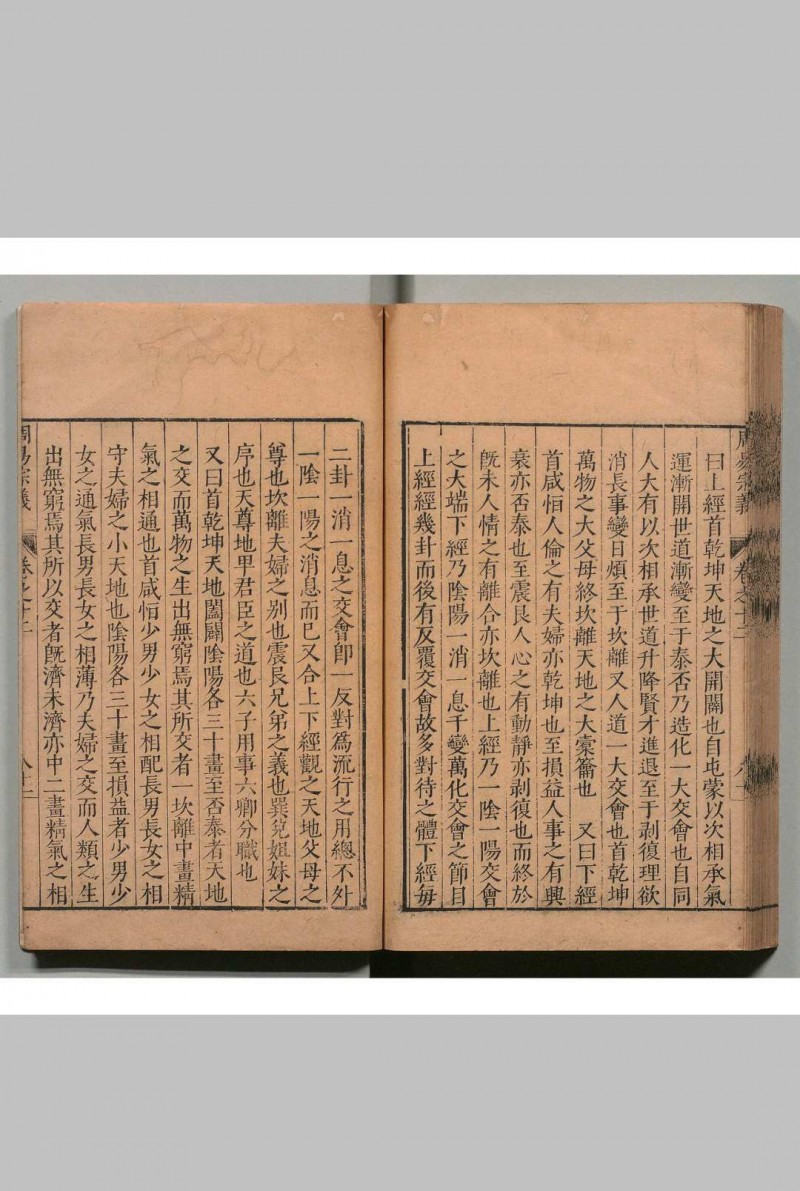 周易宗義 卷之十二
曰上經首乾坤天地之大開闢也自屯蒙以次相承氣
運漸開世道漸變至于泰否乃造化一大交會也自同
人大有以次相承世道升降賢才進退至于剥復理欲
消長事變日煩至于坎離又人道一大交會也首乾坤
萬物之大父母終坎離天地之大槖籥也 又曰下經
首咸恒人倫之有夫婦亦乾坤也至損益人事之有興
衰亦否泰也至震艮人心之有動靜亦剥復也而終於
旣未人情之有離合亦坎離也上經乃一陰一陽交會
之大端下經乃陰陽一消一息千變萬化交會之節目
上經經幾卦而後有反覆交會故多對待之體下經每
二卦一消一息之交會卽一反對爲流行之用總不外
一陰一陽之消息而已又合上下經觀之天地父母之
尊也坎離夫婦之别也震艮兄弟之義也巽兌姐妹之
序也天尊地卑君臣之道也六子用事六卿分職也
又曰首乾坤天地闔闢陰陽各三十畫至否泰者天地
之交而萬物之生出無窮焉其所交者一坎離中畫精
氣之相通也首咸恒少男少女之相配長男長女之相
守夫婦之小天地也陰陽各三十畫至損益者少男少
女之通氣長男長女之相薄乃夫婦之交而人類之生
出無窮焉其所以交者旣濟未濟亦中二畫精氣之相
周易宗義 卷之十二